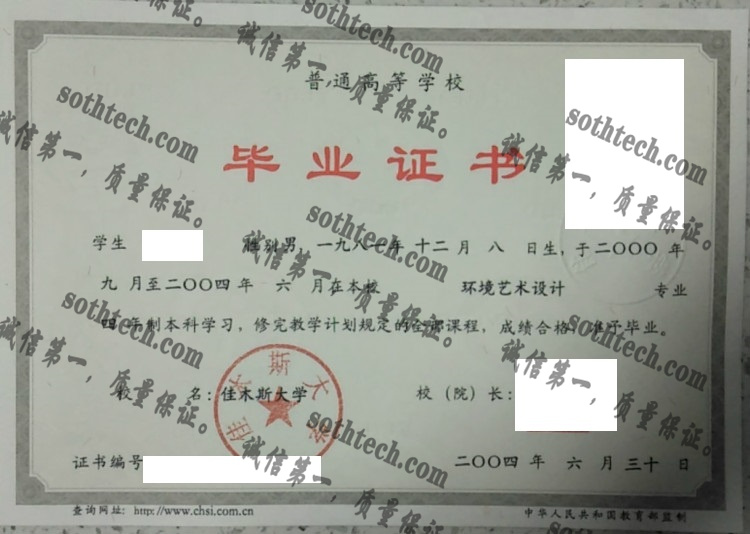 普通高等学校
毕业证书
学生 性别男，一九八一年 十二 月 八 日生，于二〇〇〇 年
九 月至二〇〇四 年 六 月在本校 环境艺术设计 专业
四 年制本科学习，修完教学计划规定的全部课程，成绩合格，准予毕业。
校 名：佳木斯大学 校（院）长：
佳木斯大学
证书编号 二〇〇四 年 六 月 三十 日
查询网址：http://www.chsi.com.cn 中华人民共和国教育部监制
sothtech.com
诚信第一，质量保证。
sothtech.com
诚信第一，质量保证。
sothtech.com
诚信第一，质量保证。
sothtech.com
诚信第一，质量保证。
sothtech.com
诚信第一，质量保证。
sothtech.com
诚信第一，质量保证。
sothtech.com
诚信第一，质量保证。